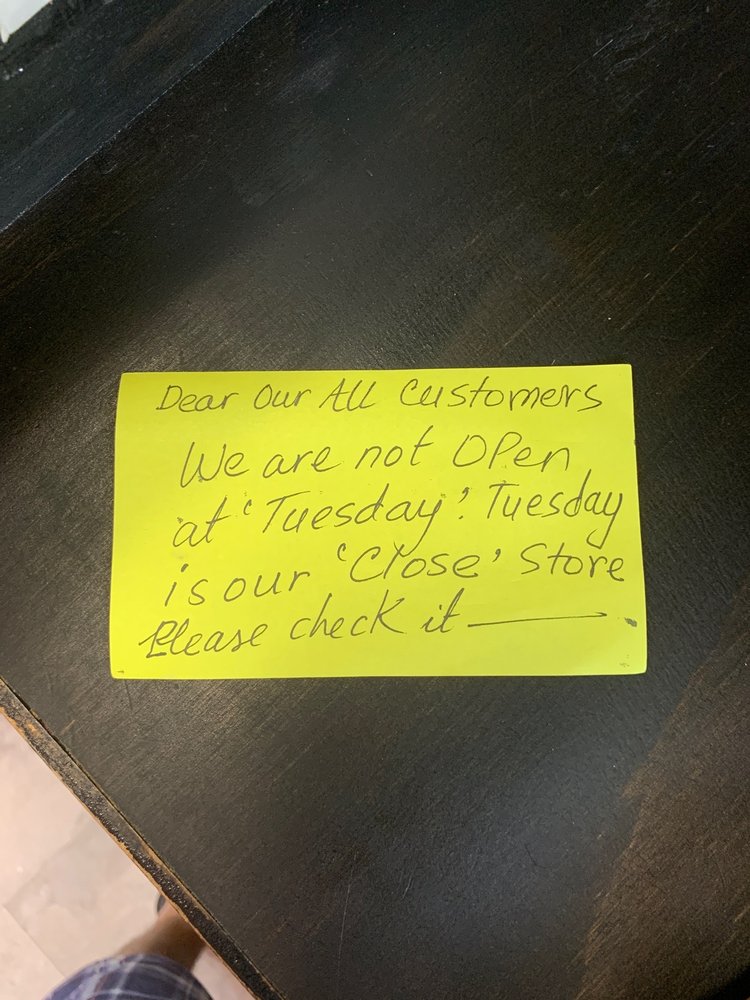 Dear Our All Customers
We are not OPen
at 'Tuesday'. Tuesday
is our 'Close' Store
Please check it —